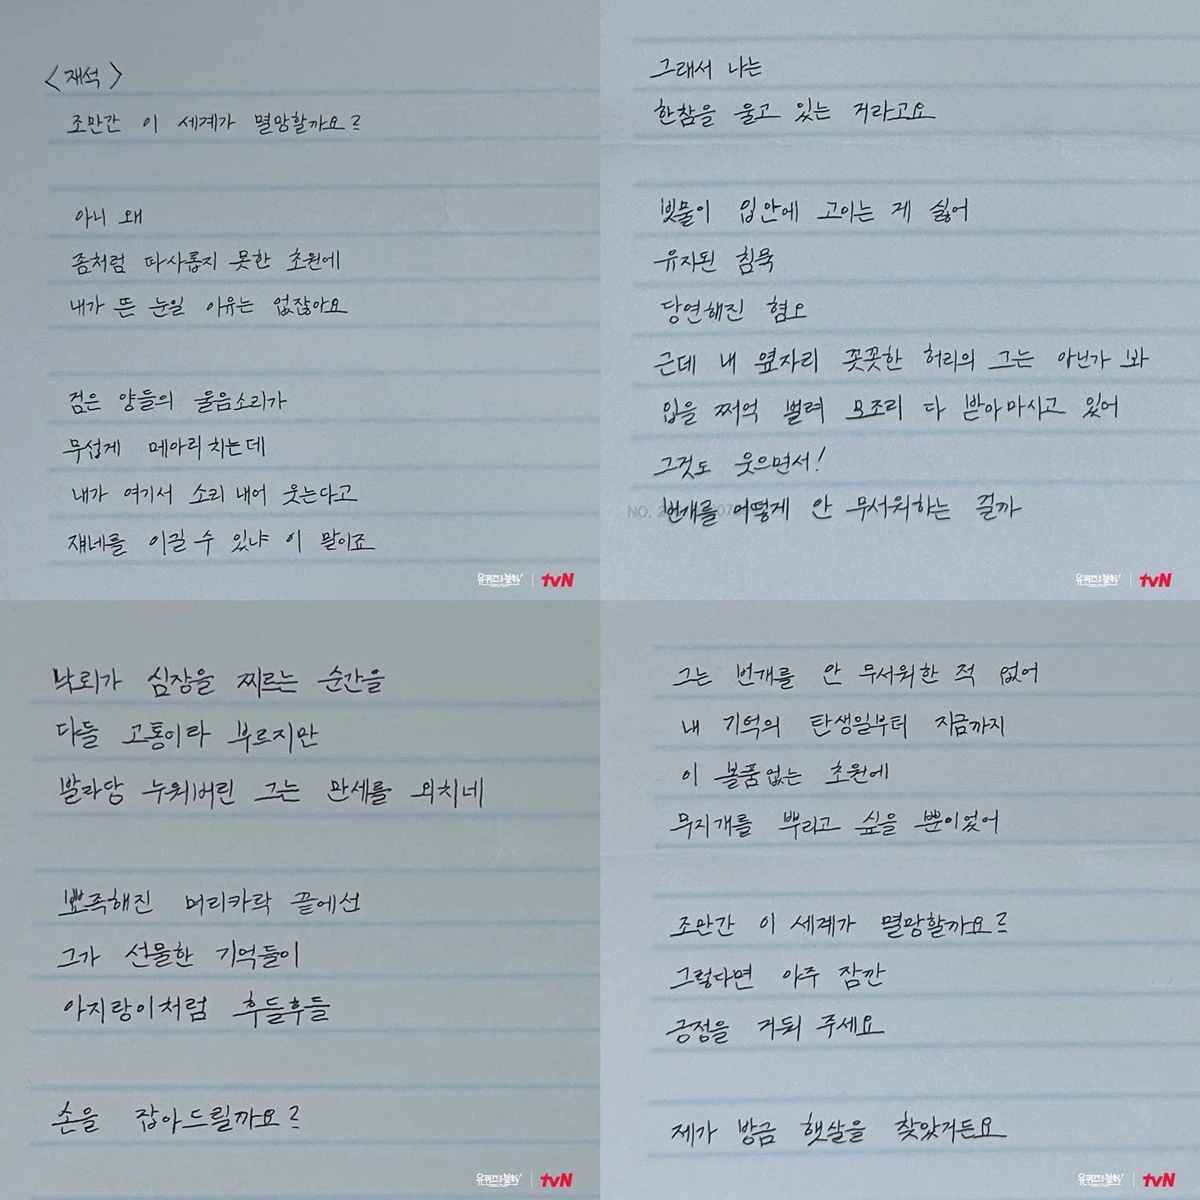 <재석>
조만간 이 세계가 멸망할까요?
아니 왜
좀처럼 따사롭지 못한 초원에
내가 뜬 눈일 이유는 없잖아요
검은 양들의 울음소리가
무섭게 메아리치는데
내가 여기서 소리 내어 웃는다고
쟤네를 이길 수 있냐 이 말이죠
유퀴즈온더블럭! tvN
그래서 나는
한참을 울고 있는 거라고요
빗물이 입안에 고이는 게 싫어
유자된 침묵
당연해진 혐오
근데 내 옆자리 꼿꼿한 허리의 그는 아닌가 봐
입을 쩌억 벌려 모조리 다 받아마시고 있어
그것도 웃으면서!
번개를 어떻게 안 무서워하는 걸까
NO.
유퀴즈온더블럭! tvN
낙뢰가 심장을 찌르는 순간을
다들 고통이라 부르지만
발라당 누워버린 그는 만세를 외치네
뾰족해진 머리카락 끝에선
그가 선물한 기억들이
아지랑이처럼 후들후들
손을 잡아드릴까요?
유퀴즈온더블럭! tvN
그는 번개를 안 무서워한 적 없어
내 기억의 탄생일부터 지금까지
이 볼품없는 초원에
무지개를 뿌리고 싶을 뿐이었어
조만간 이 세계가 멸망할까요?
그렇다면 아주 잠깐
긍정을 거둬 주세요
제가 방금 햇살을 찾았거든요
유퀴즈온더블럭! tvN